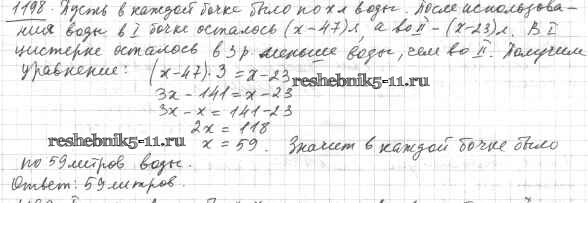 1198. Пусть в каждой бочке было по x л воды. После использова-
ния воды в I бочке осталось (x-47)л, а во II - (x-23)л. В I
цистерне осталось в 3 р меньше воды, чем во II. Получим
уравнение: (x-47)·3 = x-23
reshebnik5-11.ru
3x - 141 = x - 23
3x - x = 141 - 23
2x = 118
reshebnik5-11.ru
x = 59. Значит в каждой бочке было
по 59 литров воды.
Ответ: 59 литров.